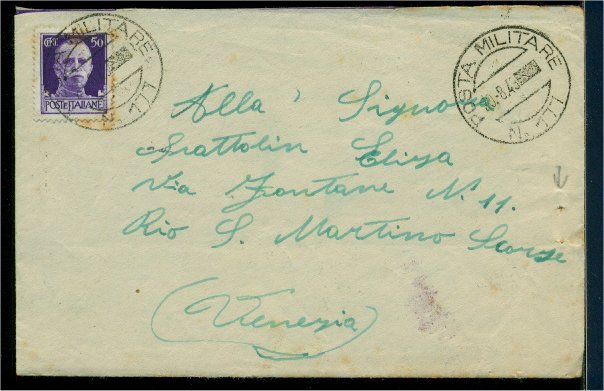 CENT. 50
POSTE ITALIANE
POSTA MILITARE
N. 77
POSTA MILITARE
N. 77
Alla Signora
Frattolin Elisa
Via Fontane N. 11.
Rio S. Martino Scorzè
(Venezia)